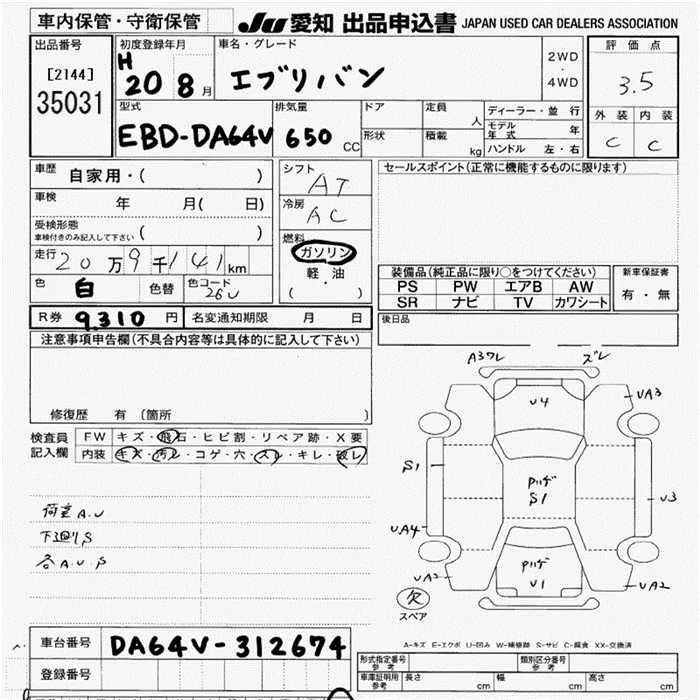 車内保管・守衛保管
Ju 愛知 出品申込書 JAPAN USED CAR DEALERS ASSOCIATION
出品番号 初度登録年月 車名・グレード 評価点
[2144] H 20 8月 エブリバン 2WD・4WD 3.5
35031
型式 排気量 ドア 定員 人 ディーラー・並行 外装 内装
EBD-DA64V 650 CC 形状 積載 kg モデル年式 年 C C
ハンドル 左・右
車歴 自家用・( ) シフト AT セールスポイント(正常に機能するものに限ります)
車検 年 月( 日) 冷房 AC
受検形態 ( )
車検付きのみ記入して下さい
燃料 ガソリン・軽油
( )
走行 20万9千141km
色 白 色替 色コード 26U
装備品(純正品に限り○をつけてください) 新車保証書
PS PW エアB AW 有・無
SR ナビ TV カワシート
R券 9.310円 名変通知期限 月 日 後日品
注意事項申告欄(不具合内容等は具体的に記入して下さい)
修復歴 有 (箇所 )
検査員記入欄
FW キズ・飛石・ヒビ割・リペア跡・X要
内装 キズ・汚レ・コゲ・穴・スレ・キレ・破レ
荷室A.U
下廻りS
各A.U.S
A3ワレ ズレ
U4 UA3
S1 S1 U3
UA4
UA2 U1 UA2
欠
スペア
A-キズ E-エクボ U-凹み W-補修跡 S-サビ C-腐食 XX-交換済
車台番号 DA64V-312674
登録番号
形式指定番号 参考 類別区分番号 参考
車庫証明用 参考 長さ cm 幅 cm 高さ cm